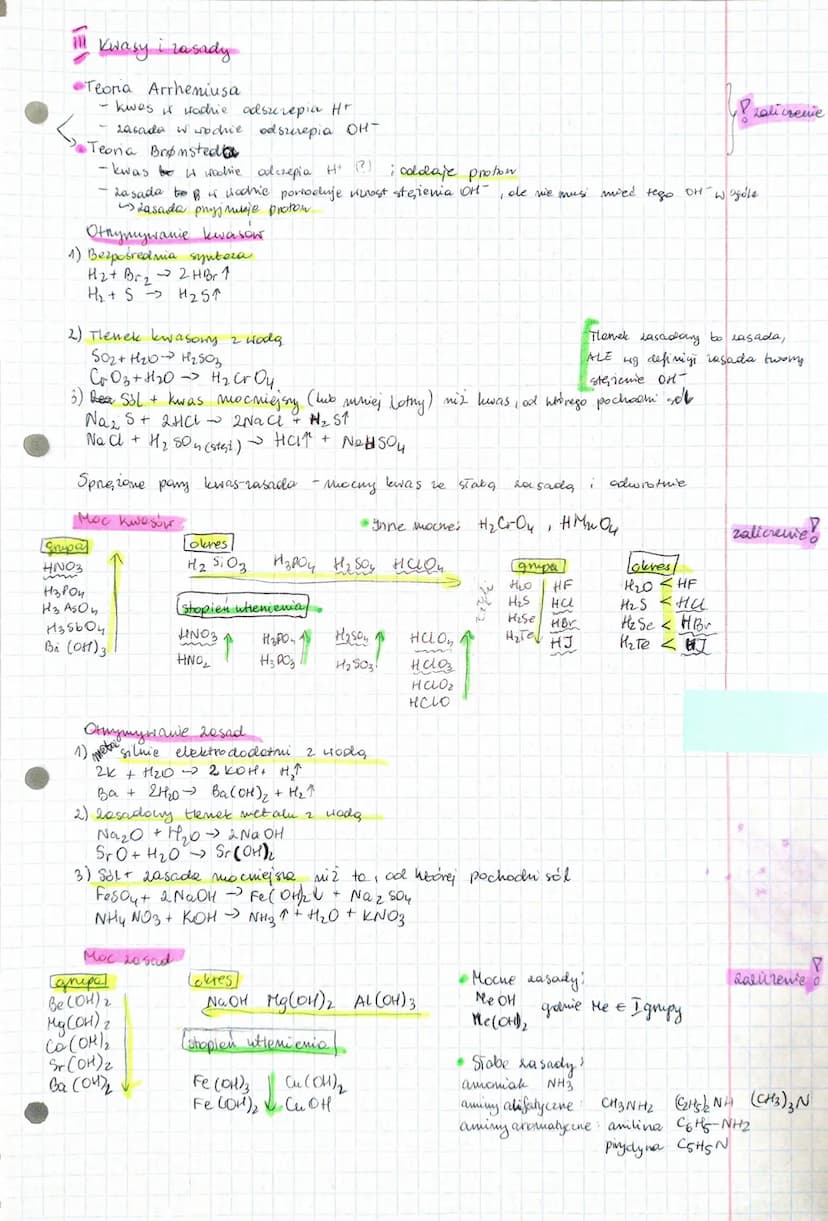 III Kwasy i zasady
• Teoria Arrheniusa
- kwas w wodzie odszczepia H⁺
- zasada w wodzie odszczepia OH⁻
! zaliczenie
• Teoria Brønsteda
- kwas w wodzie odczepia H⁺ (?) i oddaje proton
- zasada B w wodzie powoduje wzrost stężenia OH⁻, ale nie musi mieć tego OH⁻ w ogóle
↳ zasada przyjmuje proton
Otrzymywanie kwasów
1) Bezpośrednia synteza
H₂ + Br₂ → 2HBr↑
H₂ + S → H₂S↑
2) Tlenek kwasowy z wodą
SO₂ + H₂O → H₂SO₃
CrO₃ + H₂O → H₂CrO₄
Tlenek zasadowy bo zasada,
ALE wg definicji zasada tworzy
stężenie OH⁻
3) Sól + kwas mocniejszy (lub mniej lotny) niż kwas, od którego pochodzi sól
Na₂S + 2HCl → 2NaCl + H₂S↑
NaCl + H₂SO₄(stęż) → HCl↑ + NaHSO₄
Sprzężone pary kwas-zasada - mocny kwas ze słabą zasadą i odwrotnie
Moc kwasów
• Inne mocne: H₂CrO₄, HMnO₄
zaliczenie!
grupa
HNO₃
H₃PO₄
H₃AsO₄
H₃SbO₄
Bi(OH)₃
okres
H₂SiO₃ H₃PO₄ H₂SO₄ HClO₄
stopień utlenienia
HNO₃ H₃PO₄ H₂SO₄ HClO₄
HNO₂ H₃PO₃ H₂SO₃ HClO₃
HClO₂
HClO
grupa
H₂O HF
H₂S HCl
H₂Se HBr
H₂Te HJ
okres
H₂O < HF
H₂S < HCl
H₂Se < HBr
H₂Te < HJ
Otrzymywanie zasad
1) metal silnie elektrododatni z wodą
2K + H₂O → 2KOH + H₂↑
Ba + 2H₂O → Ba(OH)₂ + H₂↑
2) zasadowy tlenek metalu z wodą
Na₂O + H₂O → 2NaOH
SrO + H₂O → Sr(OH)₂
3) Sól + zasada mocniejsza niż ta, od której pochodzi sól
FeSO₄ + 2NaOH → Fe(OH)₂↓ + Na₂SO₄
NH₄NO₃ + KOH → NH₃↑ + H₂O + KNO₃
Moc zasad
zaliczenie!
grupa
Be(OH)₂
Mg(OH)₂
Ca(OH)₂
Sr(OH)₂
Ba(OH)₂
okres
NaOH Mg(OH)₂ Al(OH)₃
stopień utlenienia
Fe(OH)₃ Cu(OH)₂
Fe(OH)₂ CuOH
• Mocne zasady:
MeOH
Me(OH)₂ gdzie Me ∈ I grupy
• Słabe zasady:
amoniak NH₃
aminy alifatyczne: CH₃NH₂ (C₂H₅)₂NH (CH₃)₃N
aminy aromatyczne: anilina C₆H₅-NH₂
pirydyna C₅H₅N